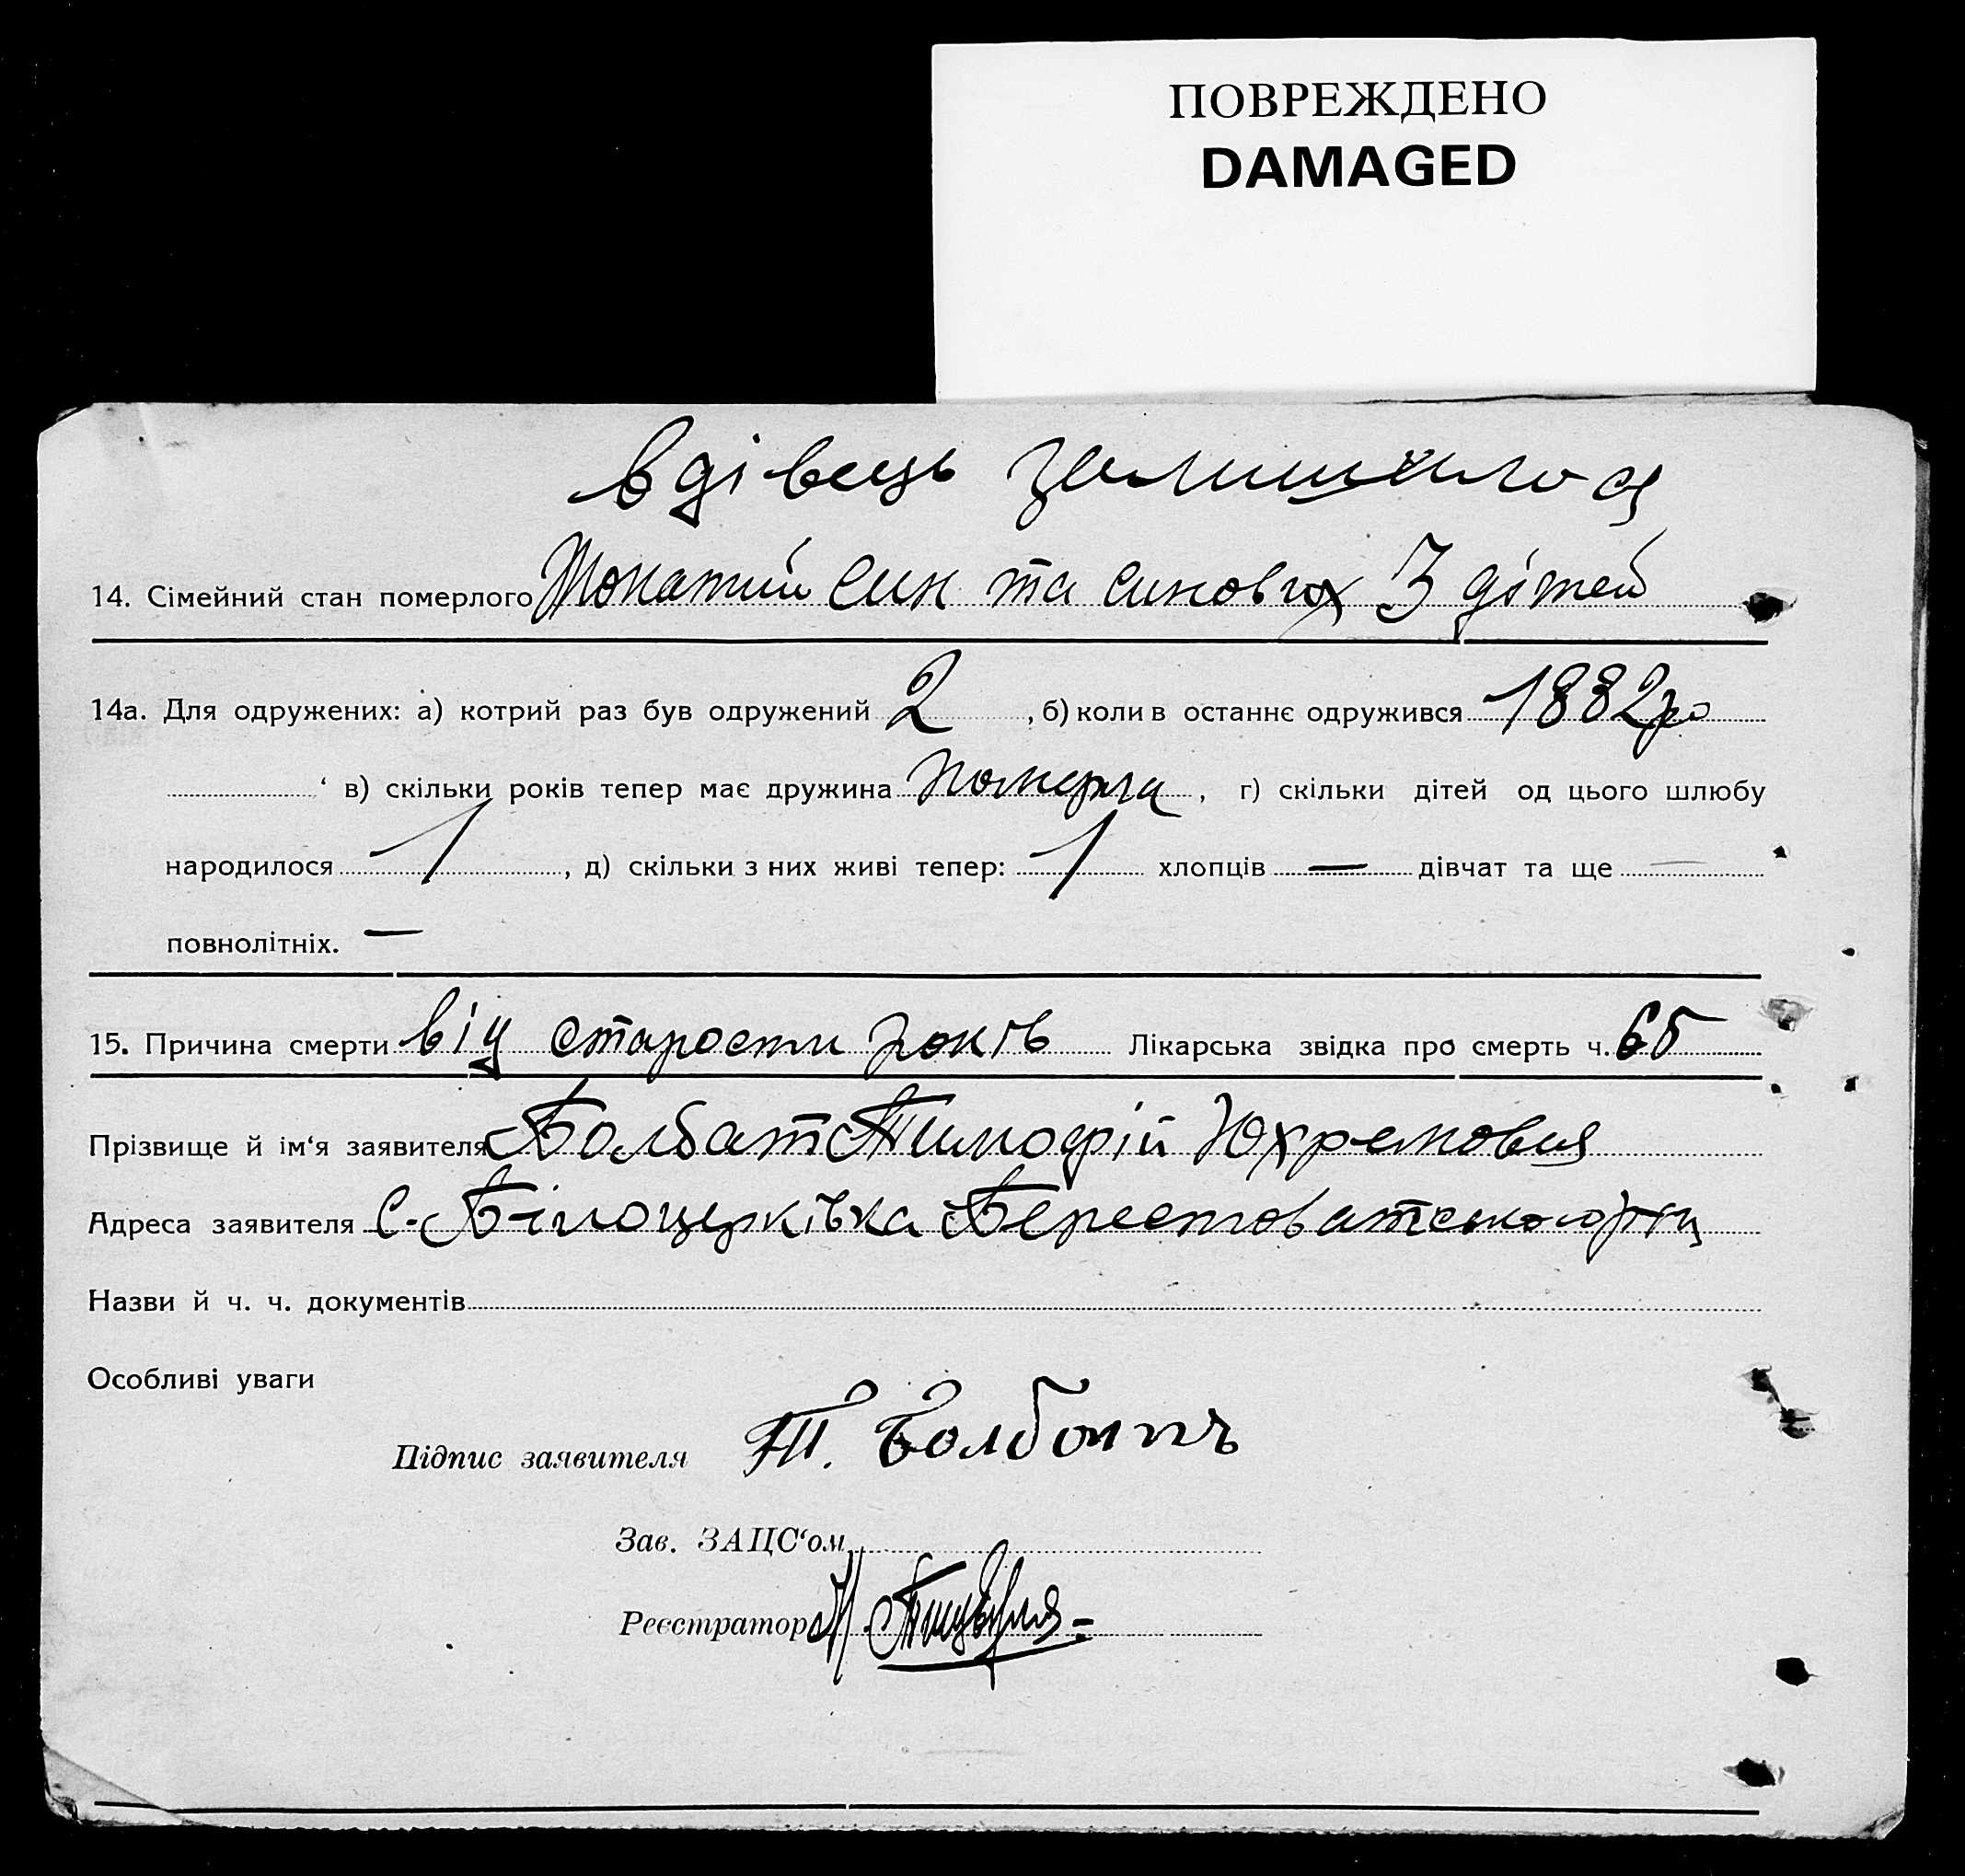 ПОВРЕЖДЕНО
DAMAGED
вдівець залишилося
14. Сімейний стан померлого Жонатий син та синових 3 дітей
14а. Для одружених: а) котрий раз був одружений 2, б) коли в останнє одружився 1882 ро
‘ в) скільки років тепер має дружина померла, г) скільки дітей од цього шлюбу
народилося 1, д) скільки з них живі тепер: 1 хлопців — дівчат та ще —
повнолітніх. —
15. Причина смерти від старости років Лікарська звідка про смерть ч. 65
Прізвище й ім‘я заявителя Болбат Тимофій Юхремовия
Адреса заявителя С. Білоцерківка Берестоватського р
Назви й ч. ч. документів
Особливі уваги
Підпис заявителя Т. Болбатъ
Зав. ЗАЦС‘ом
Реєстратор